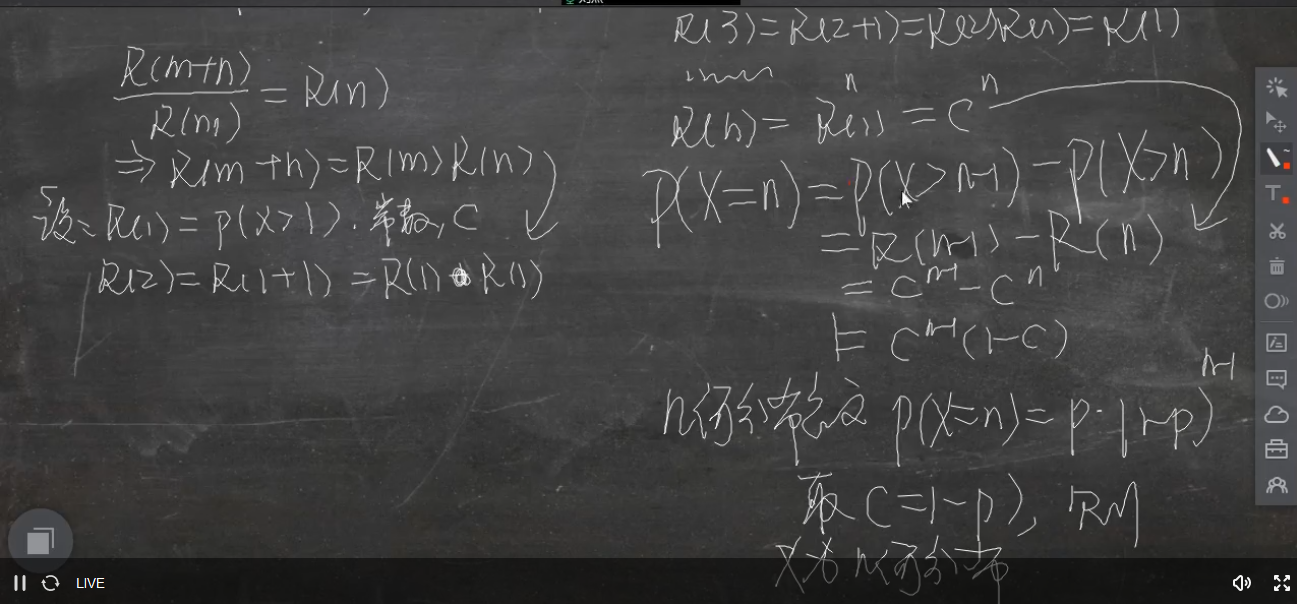 R(m+n)
R(m)
= R(n)
⇒ R(m+n) = R(m) R(n)
设: R(1) = P(X>1). 常数, C
R(2) = R(1+1) = R(1) R(1)
R(3) = R(2+1) = R(2)R(1) =
R(n) = R(1)ⁿ = Cⁿ
P(X=n) = P(X>n-1) - P(X>n)
= R(n-1) - R(n)
= Cⁿ⁻¹ - Cⁿ
= Cⁿ⁻¹(1-C)
几何分布定义 P(X=n) = P·(1-p)ⁿ⁻¹
取 C=1-p,
X为几何分布
LIVE